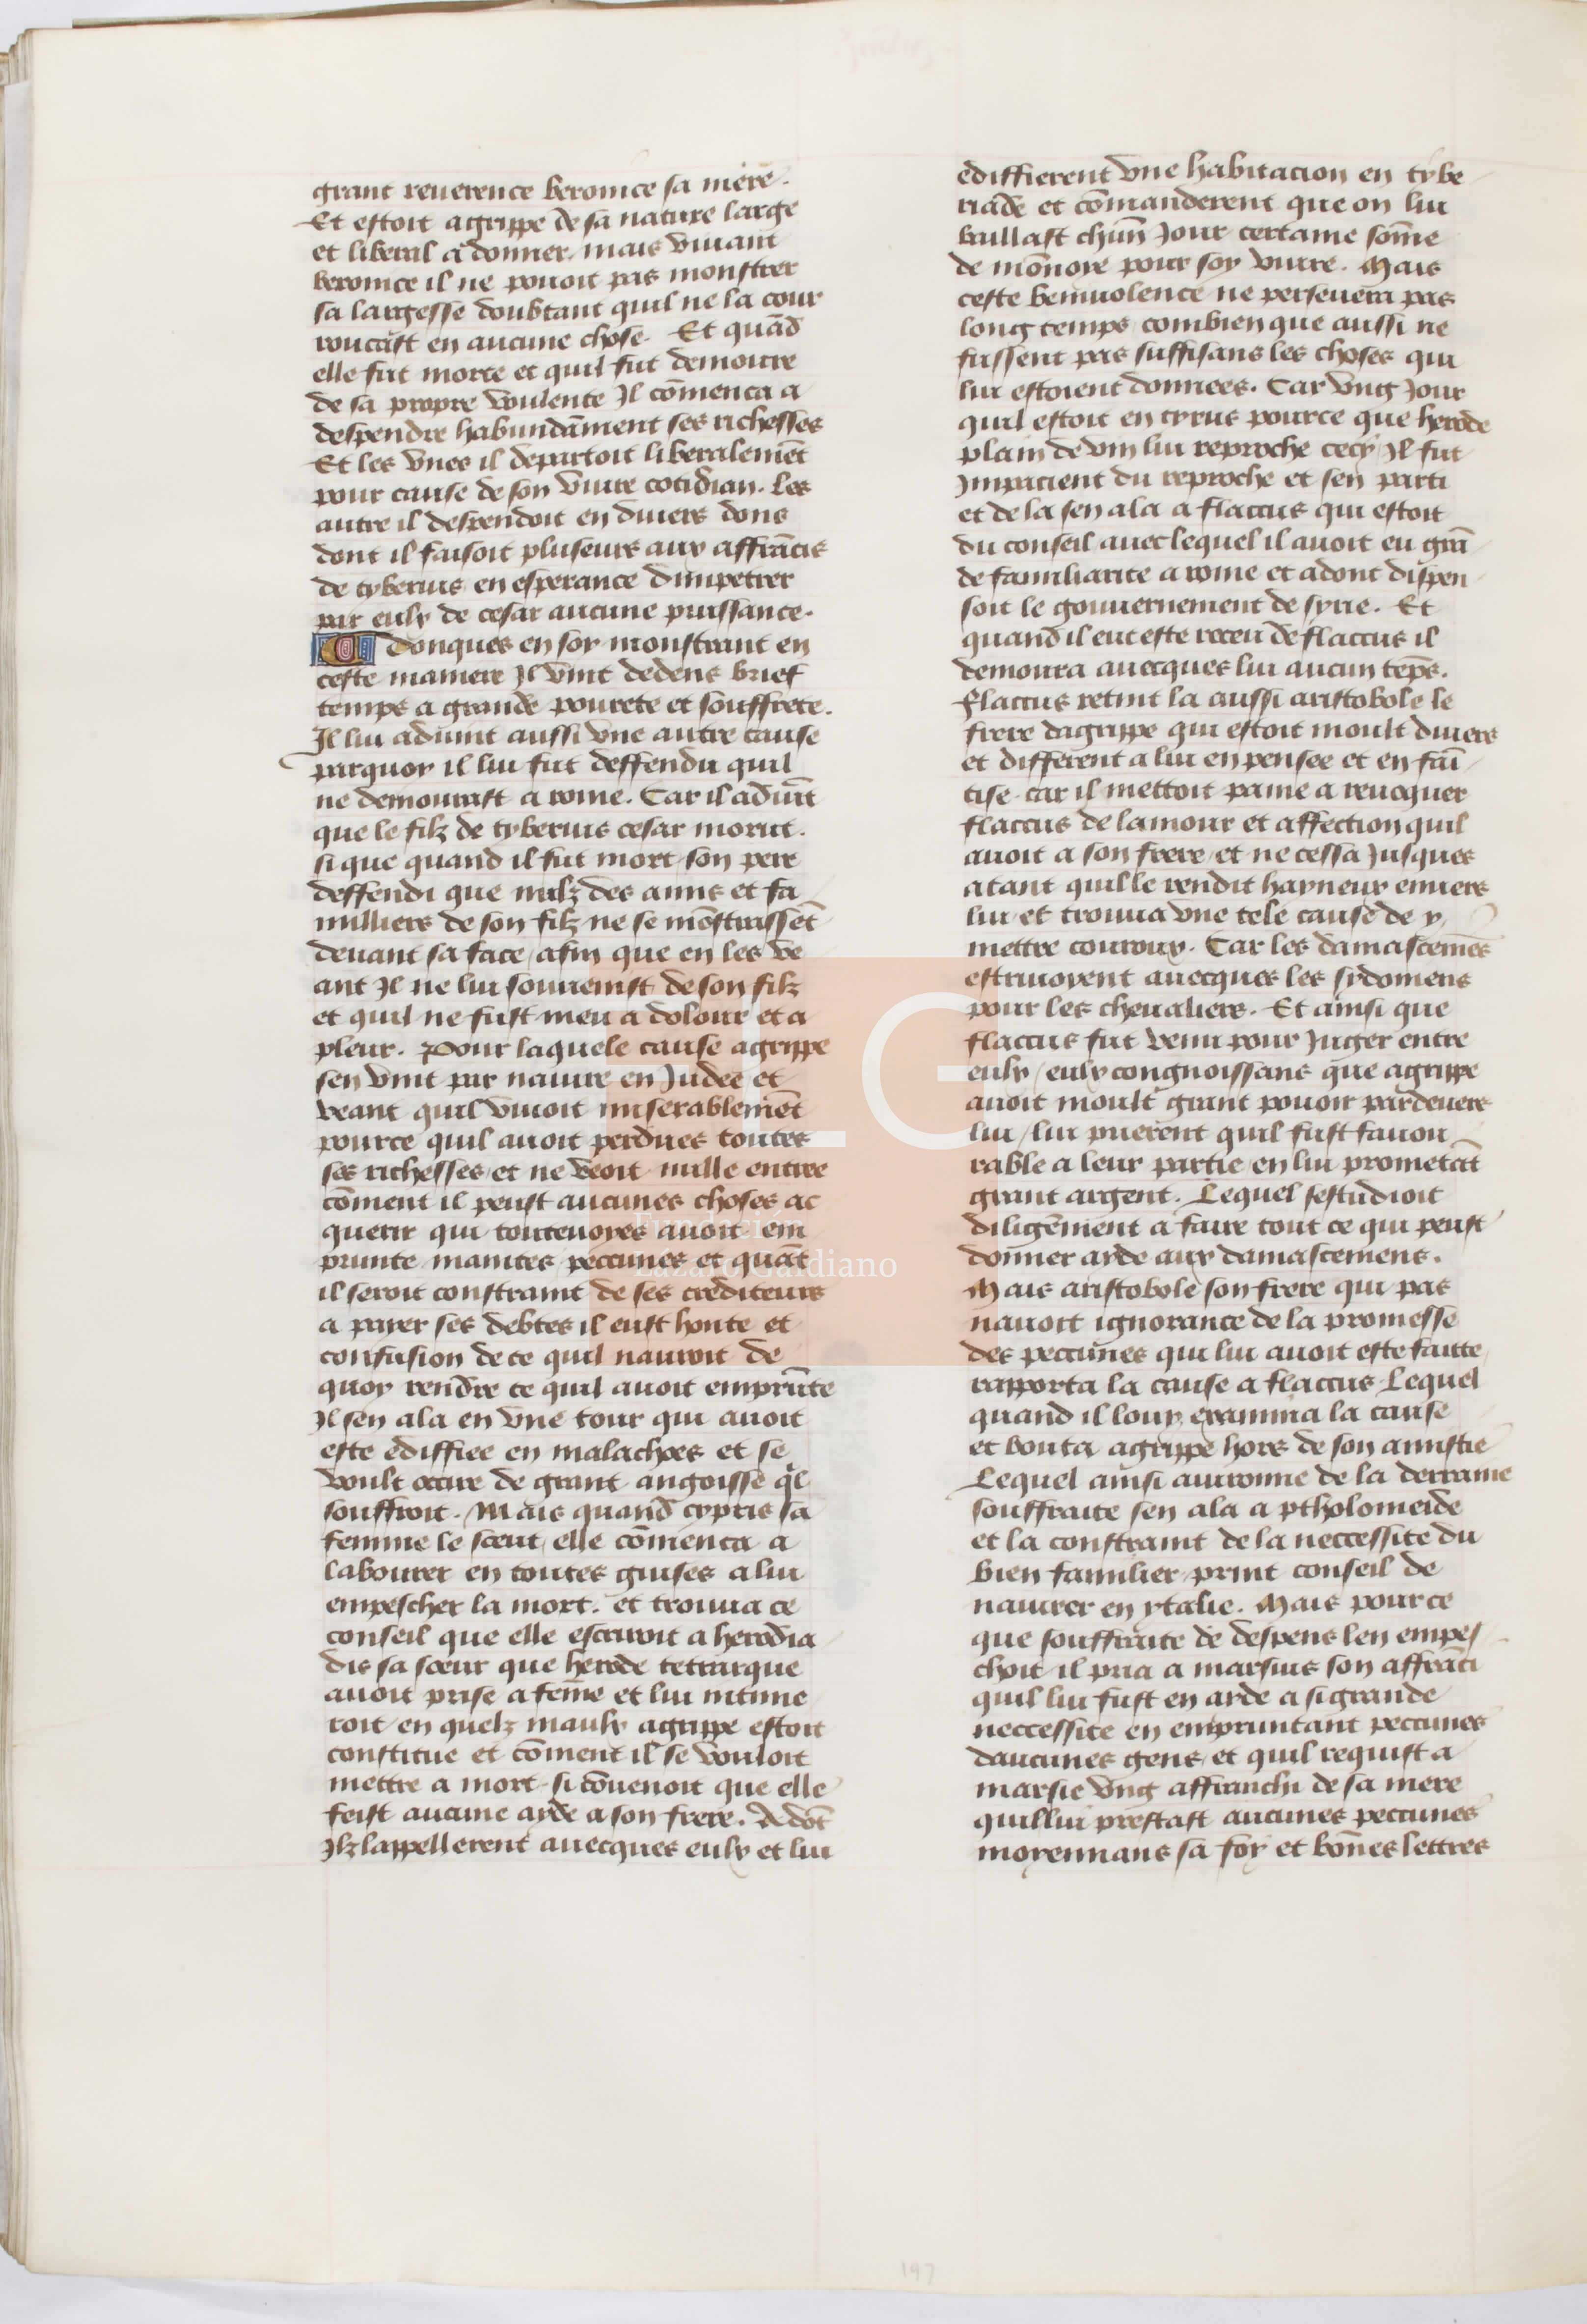 grant reuerence beronice sa mere.
Et estoit agrippe de sa nature large
et liberal a donner. mais viuant
beronice il ne pouoit pas monstrer
sa largesse doubtant quil ne la cour
roucast en aucune chose. Et quād
elle fut morte et quil fut demoure
de sa propre voulente Il cōmenca a
despendre habundāment ses richesses
Et les vnes il departoit liberalemēt
pour cause de son viure cotidian. Les
autre il despendoit en diuers dons
dont il faisoit pluseurs aux affrācis
de tyberius en esperance dimpetrer
par eulx de cesar aucune puissance.
Adonques en soy monstrant en
ceste maniere Il vint dedens brief
temps a grande pourete et souffrete.
Il lui aduint aussi vne autre cause
parquoy il lui fut deffendu quil
ne demourast a rome. Car il aduīt
que le filz de tyberius cesar morut.
si que quand il fut mort son pere
deffendi que nulz des amis et fa
milliers de son filz ne se mōstrassēt
deuant sa face / afin que en les ve
ant Il ne lui souuenist de son filz
et quil ne fust meu a dolour et a
pleur. Pour laquele cause agrippe
sen vint par nauire en Iudee et
veant quil viuoit miserablemēt
pource quil auoit perdues toutes
ses richesses et ne veoit nulle entree
cōment il peust aucunes choses ac
querir qui toutteuoyes auoit em
prunte maintes peccunes et quāt
il seroit constraint de ses crediteurs
a payer ses debtes il eust honte et
confusion de ce quil nauroit de
quoy rendre ce quil auoit emprūte
Il sen ala en vne tour qui auoit
este ediffiee en malachoes et se
voult occire de grant angoisse q̄l
souffroit. Mais quand cypris sa
femme le sceut / elle cōmenca a
labourer en toutes guises a lui
empescher la mort. et trouua ce
conseil que elle escriuoit a herodia
dis sa soeur que herode tetrarque
auoit prise a feme et lui intime
roit en quelz maulx agrippe estoit
constitue et cōment il se vouloit
mettre a mort si cōuenoit que elle
feist aucune ayde a son frere. Adōt
Ilz lappellerent auecques eulx et lui
ediffierent vne habitacion en tybe
riade et cōmanderent que on lui
baillast chūn Iour certaine sōme
de mōnoye pour soy viure. Mais
ceste beniuolence ne perseuera pas
long temps combien que aussi ne
fussent pas suffisans les choses qui
lui estoient donnees. Car vng Iour
quil estoit en tyrus pource que herode
plain de vin lui reproche cecy Il fut
Impacient du reproche et sen parti
et de la sen ala a flaccus qui estoit
du conseil auec lequel il auoit eu grā
de familiarite a rome et adont dispen
soit le gouuernement de syrie. Et
quand il eut este receu de flaccus il
demoura auecques lui aucun tēps.
Flaccus retint la aussi aristobole le
frere dagrippe qui estoit moult diuers
et different a lui en pensee et en fain
tise car il mettoit paine a reuoquer
flaccus de lamour et affection quil
auoit a son frere et ne cessa Iusques
a tant quil le rendit hayneux enuers
lui et trouua vne tele cause de y
mettre couroux. Car les damascenes
estriuoyent auecques les sydomens
pour les cheualiers. Et ainsi que
flaccus fut venu pour Iuger entre
eulx / eulx congnoissans que agrippe
auoit moult grant pouoir pardeuers
lui / lui prierent quil fust fauou
rable a leur partie en lui prometāt
grant argent. Lequel sestudioit
diligēment a faire tout ce qui peust
donner ayde aux damasceniens.
Mais aristobole son frere qui pas
nauoit ignorance de la promesse
des peccunes qui lui auoit este faitte
rapporta la cause a flaccus Lequel
quand il louy examina la cause
et bouta agrippe hors de son amistie
Lequel ainsi auironne de la derraine
souffraite sen ala a ptholomeide
et la constraint de la neccessite du
bien familier print conseil de
nauirer en ytalie. Mais pour ce
que souffraite de despens len empes
choit il pria a marsius son affrāci
quil lui fust en ayde a si grande
neccessite en empruntant peccunes
daucunes gens et quil requist a
marsie vng affranchi de sa mere
quil lui prestast aucunes peccunes
moyennans sa foy et bōnes lettres
Fundación
Lázaro Galdiano
197